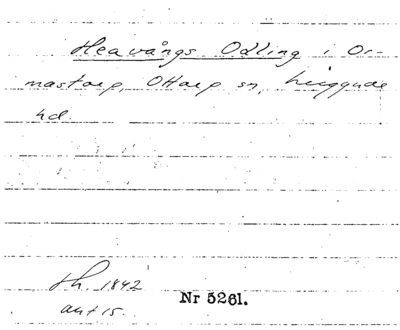 Heavångs Odling i Or-
mastorp, Ottarp sn, Luggude
hd.
sh. 1842
akt 15.
Nr 5261.